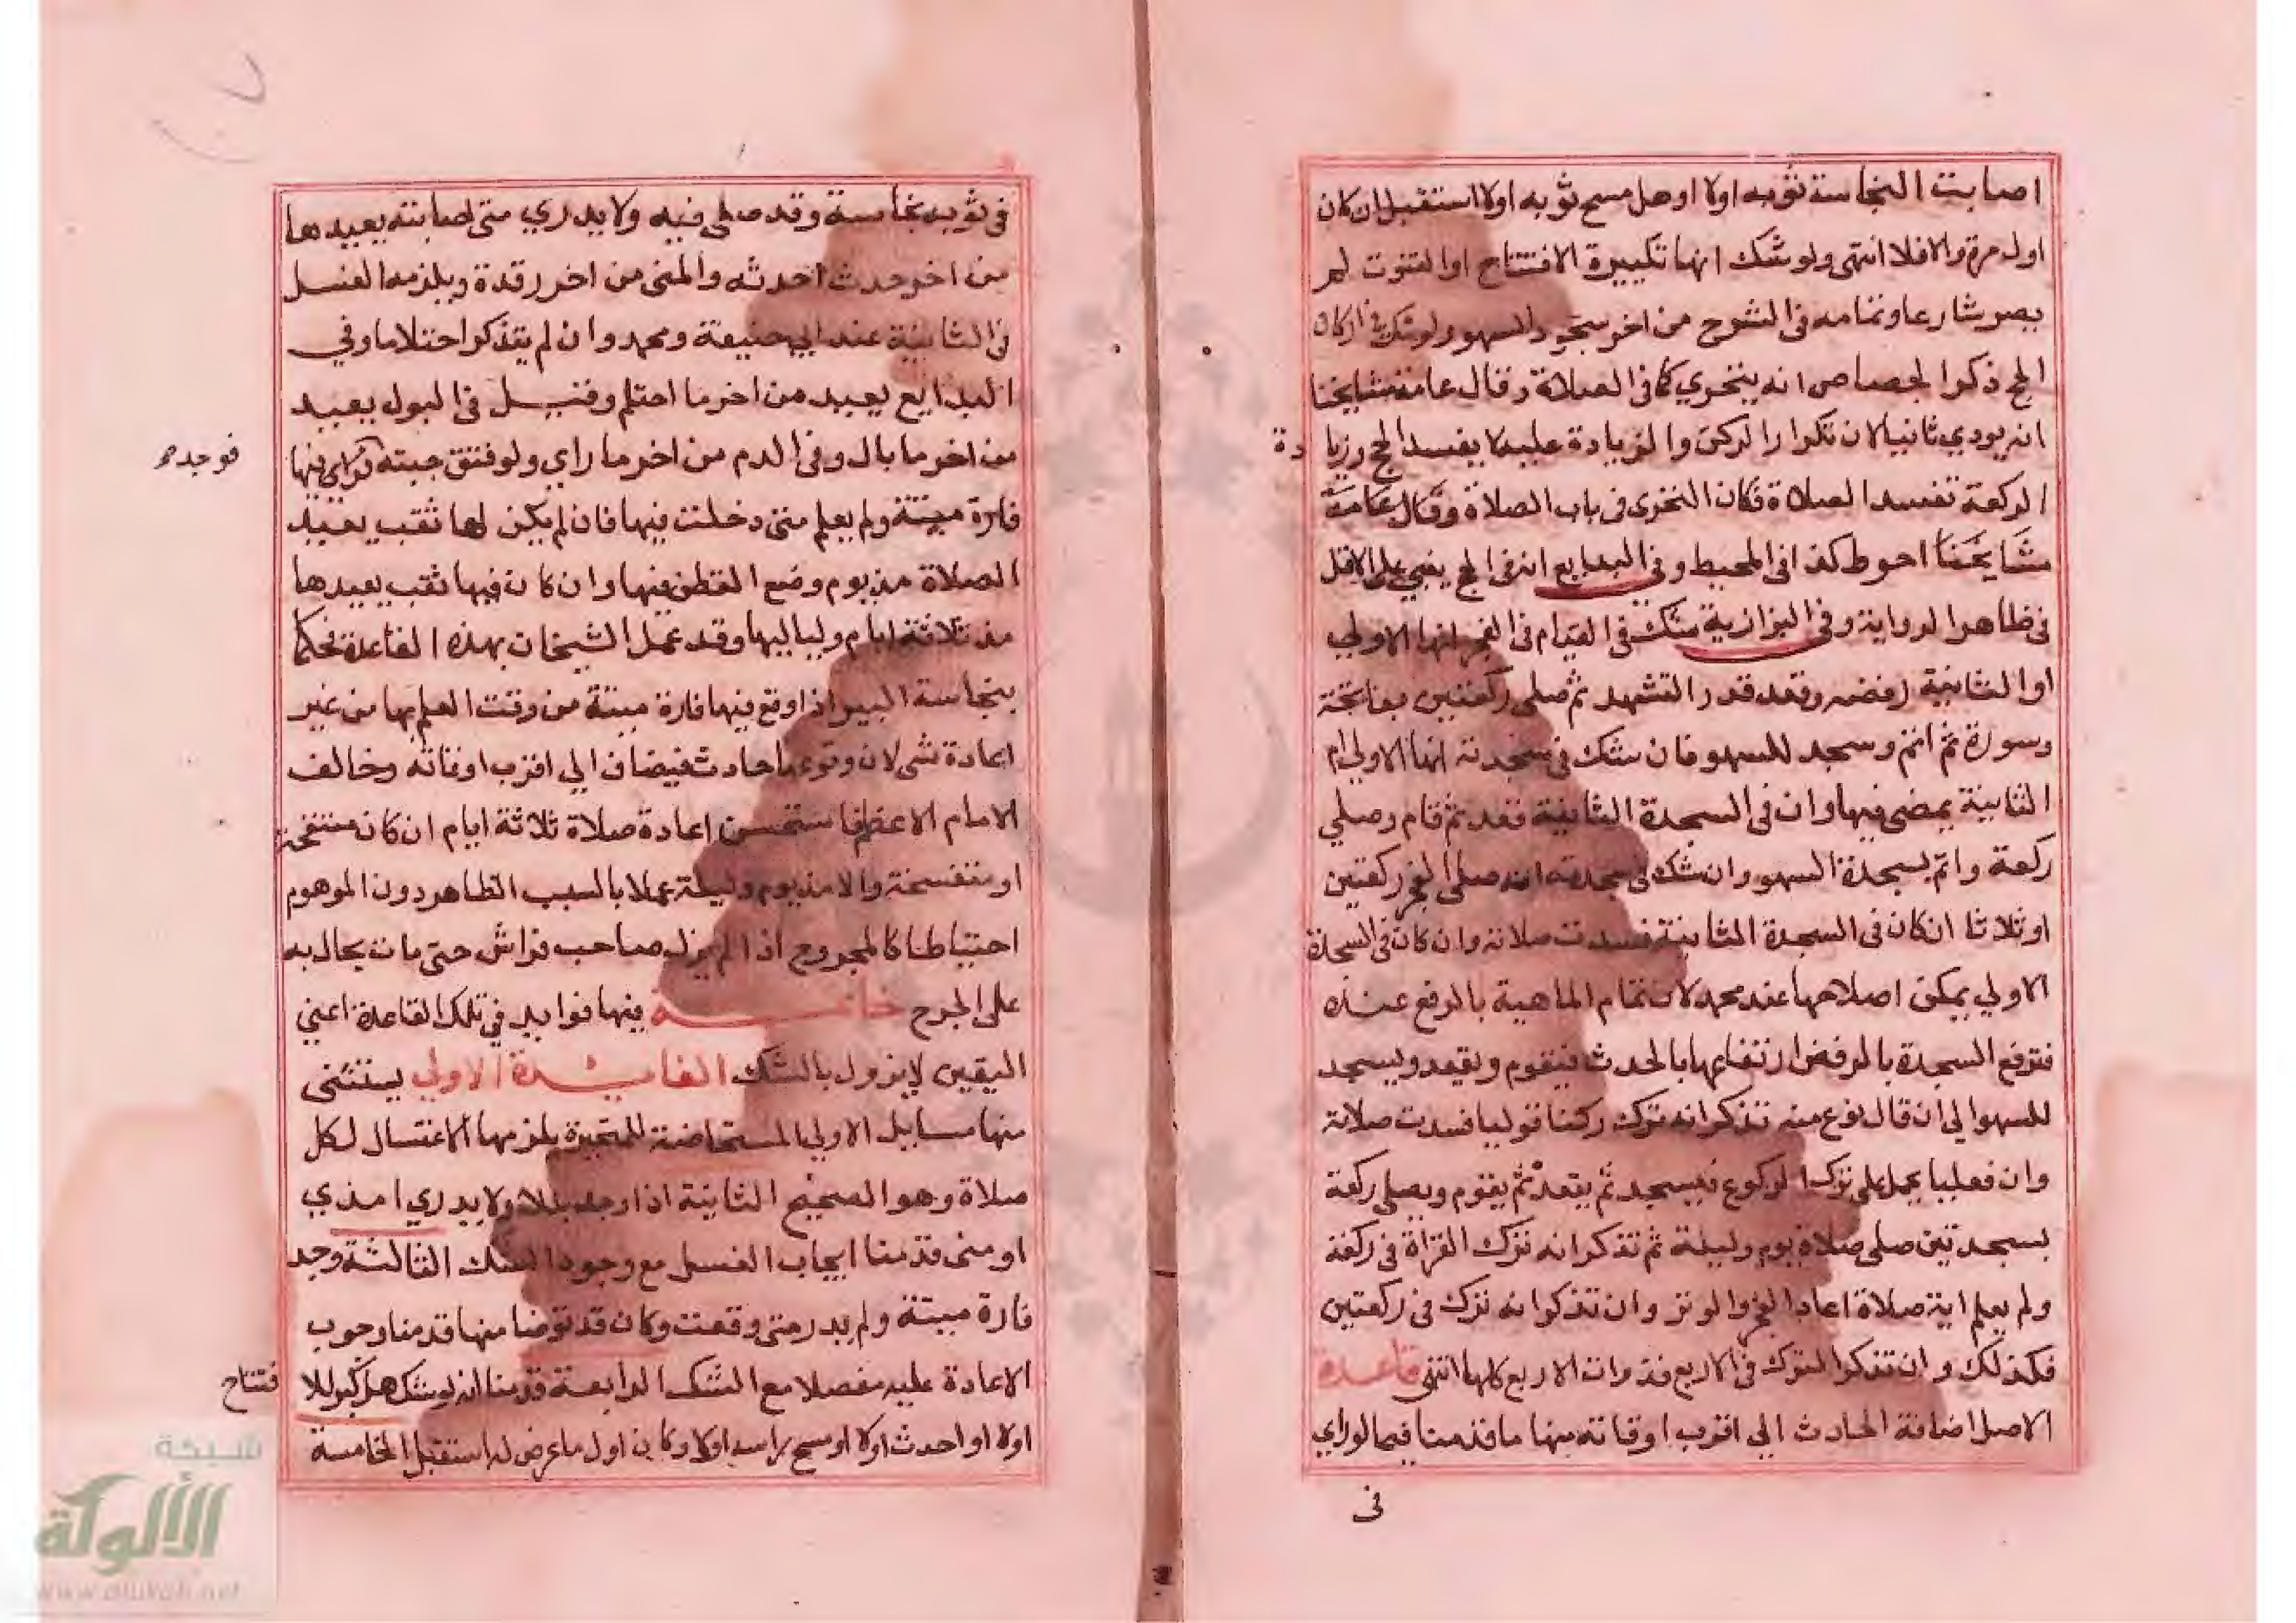 اصابت النجاسة ثوبه اولا او هل مسح ثوبه اولا استقبل ان كان
اول مرة والا فلا انتهى ولو شك انها تكبيرة الافتتاح او القنوت لم
يصر شارعا وتمامه في الشرح من اخر سجود السهو ولو شك في اركان
الحج ذكر الجصاص انه يتحري كما في الصلاة وقال عامة مشايخنا
انه يودي ثانيا لان تكرار الركن والزيادة عليه لا يفسد الحج وزيادة
الركعة تفسد الصلاة فكان التحري في باب الصلاة وقال عامة
مشايخنا احوط كذا في المحيط وفي البدايع انه في الحج يبني على الاقل
في ظاهر الرواية وفي البزازية شك في القيام في الفجر انها الاولي
او الثانية رفضه وقعد قدر التشهد ثم صلى ركعتين بفاتحة
وسورة ثم اتم وسجد للسهو فان شك في سجدته انها الاولي ام
الثانية يمضي فيها وان في السجدة الثانية فقعد ثم قام وصلي
ركعة واتم بسجدة السهو وان شك في سجدته انه صلى الفجر ركعتين
او ثلاثا ان كان في السجدة الثانية فسدت صلاته وان كان في السجدة
الاولي يمكن اصلاحها عند محمد لان تمام الماهية بالرفع عنده
فترفع السجدة بالرفض ارتفاعها بالحدث فيقوم ويقعد ويسجد
للسهو الي ان قال نوع منه تذكر انه ترك ركنا قوليا فسدت صلاته
وان فعليا يحمل على ترك الركوع فيسجد ثم يقعد ثم يقوم ويصلي ركعة
بسجدتين صلى صلاة يوم وليلة ثم تذكر انه ترك القراة في ركعة
ولم يعلم اية صلاة اعاد الفجر والوتر وان تذكر انه ترك في ركعتين
فكذلك وان تذكر الترك في الاربع فذوات الاربع كلها انتهى قاعدة
الاصل اضافة الحادث الي اقرب اوقاته منها ما قدمنا فيما لو راي
في
في ثوبه نجاسة وقد صلى فيه ولا يدري متى اصابته يعيدها
من اخر حدث احدثه والمني من اخر رقدة ويلزمه الغسل
في الثانية عند ابي حنيفة ومحمد وان لم يتذكر احتلاما وفي
البدايع يعيد من اخر ما احتلم وقيل في البول يعيد
من اخر ما بال وفي الدم من اخر ما راي ولو فتق جبته فيها
فوجد
فارة ميتة ولم يعلم متى دخلت فيها فان لم يكن لها ثقب يعيد
الصلاة مذ يوم وضع القطن فيها وان كان فيها ثقب يعيدها
مذ ثلاثة ايام ولياليها وقد عمل الشيخان بهذه القاعدة فحكما
بنجاسة البير اذا وقع فيها فارة ميتة من وقت العلم بها من غير
اعادة شي لان وقوعها حادث فيضاف الي اقرب اوقاته وخالف
الامام الاعظم فاستحسن اعادة صلاة ثلاثة ايام ان كان منتفخة
او متفسخة والا مذ يوم وليلة عملا بالسبب الظاهر دون الموهوم
احتياطا كالمجروح اذا لم يزل صاحب فراش حتى مات يحال به
على الجرح خاتمة فيها فوايد في تلك القاعدة اعني
اليقين لا يزول بالشك الفايدة الاولي يستثنى
منها مسايل الاولي المستحاضة المتحيرة يلزمها الاغتسال لكل
صلاة وهو الصحيح الثانية اذا وجد بللا ولا يدري امذي
او منى قدمنا ايجاب الغسل مع وجود الشك الثالثة وجد
فارة ميتة ولم يدر متى وقعت وكان قد توضا منها قدمنا وجوب
الاعادة عليه مفصلا مع الشك الرابعة قدمنا انه لو شك هل كبر للا
فتتاح
اولا او احدث اولا او مسح براسه اولا وكان اول ما عرض له استقبل الخامسة
شبكة
الألوكة
www.alukah.net